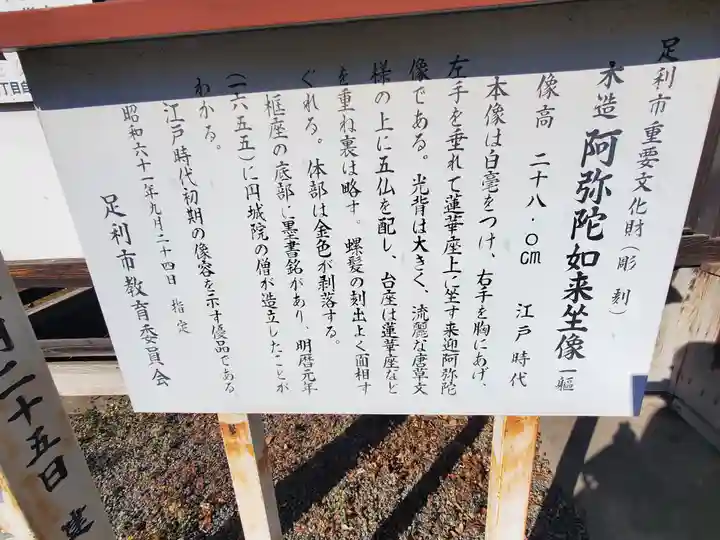 足利市重要文化財（彫刻）
木造 阿弥陀如来坐像 一軀
像高 二十八・〇cm 江戸時代
本像は白毫をつけ、右手を胸にあげ、
左手を垂れて蓮華座上に坐す来迎阿弥陀
像である。光背は大きく、流麗な唐草文
様の上に五仏を配し、台座は蓮華座など
を重ね裏は略す。螺髪の刻出上く面相す
ぐれる。体部は金色が剥落する。
框座の底部に墨書銘があり、明暦元年
（一六五五）に円城院の僧が造立したことが
わかる。
江戸時代初期の像容を示す優品である
昭和六十一年九月二十四日 指定
足利市教育委員会
二十五日
丁目